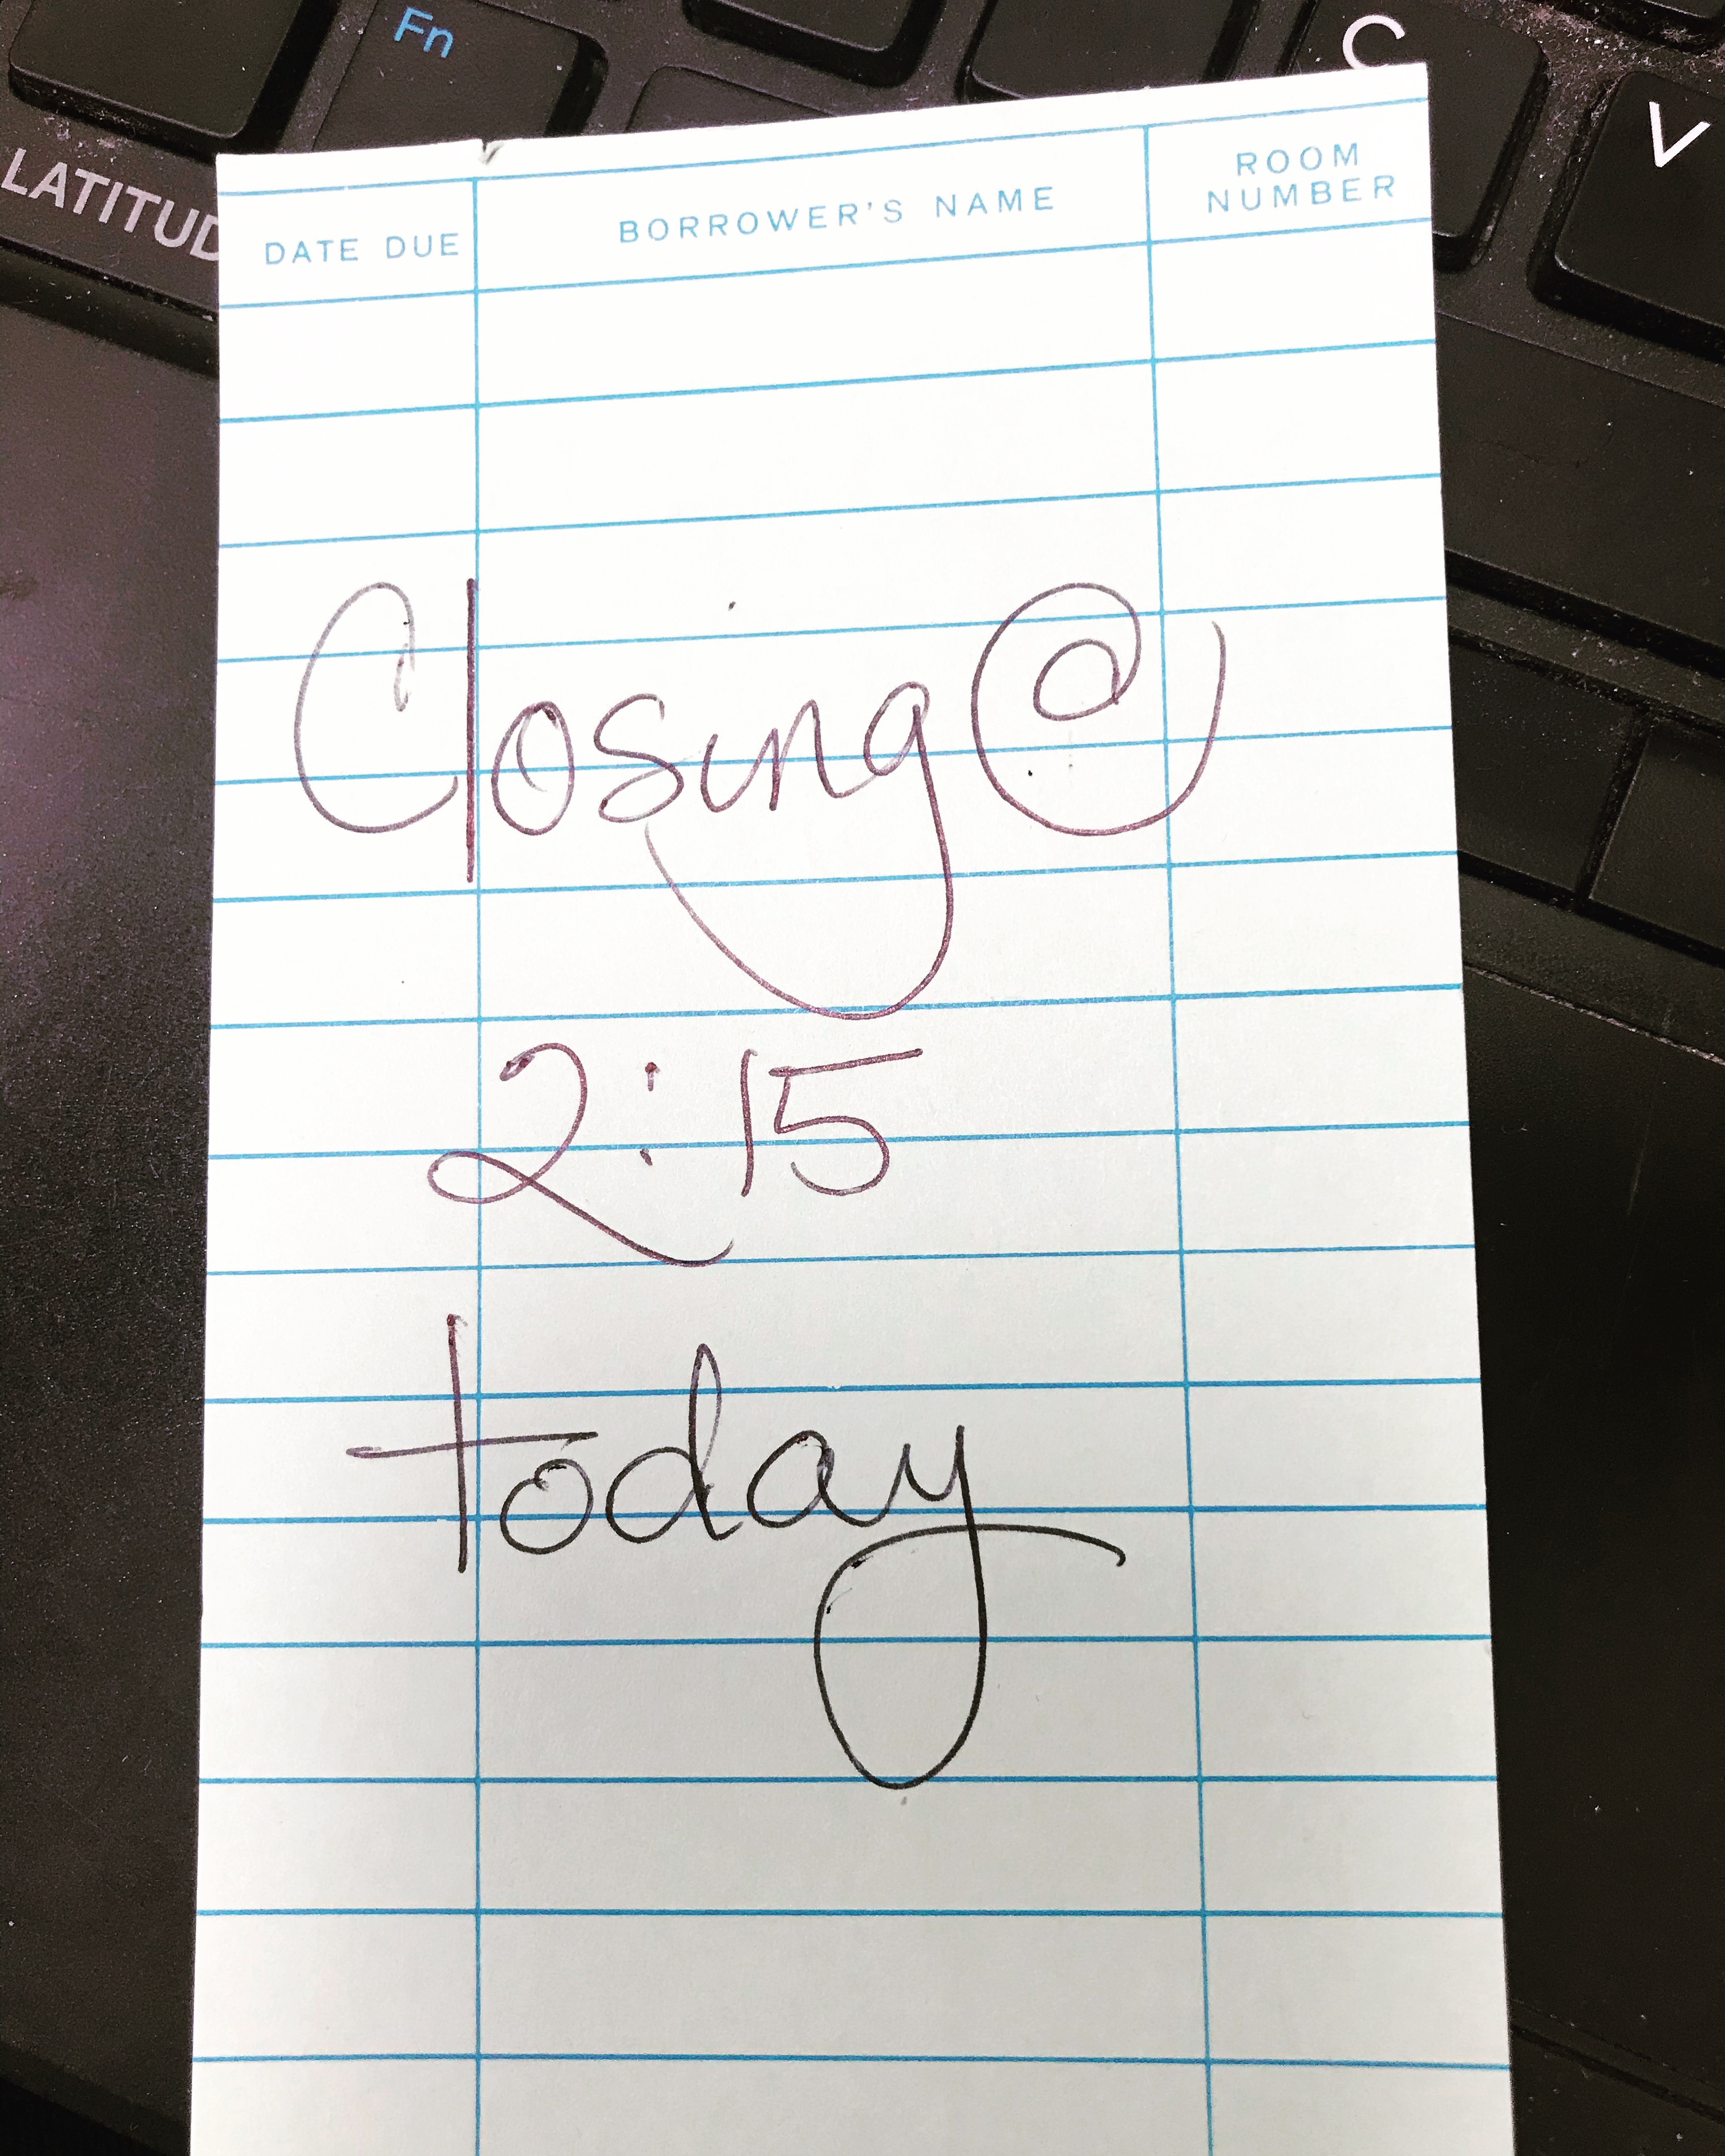 Fn
C
V
LATITUD
DATE DUE
BORROWER'S NAME
ROOM
NUMBER
Closing @
2:15
today